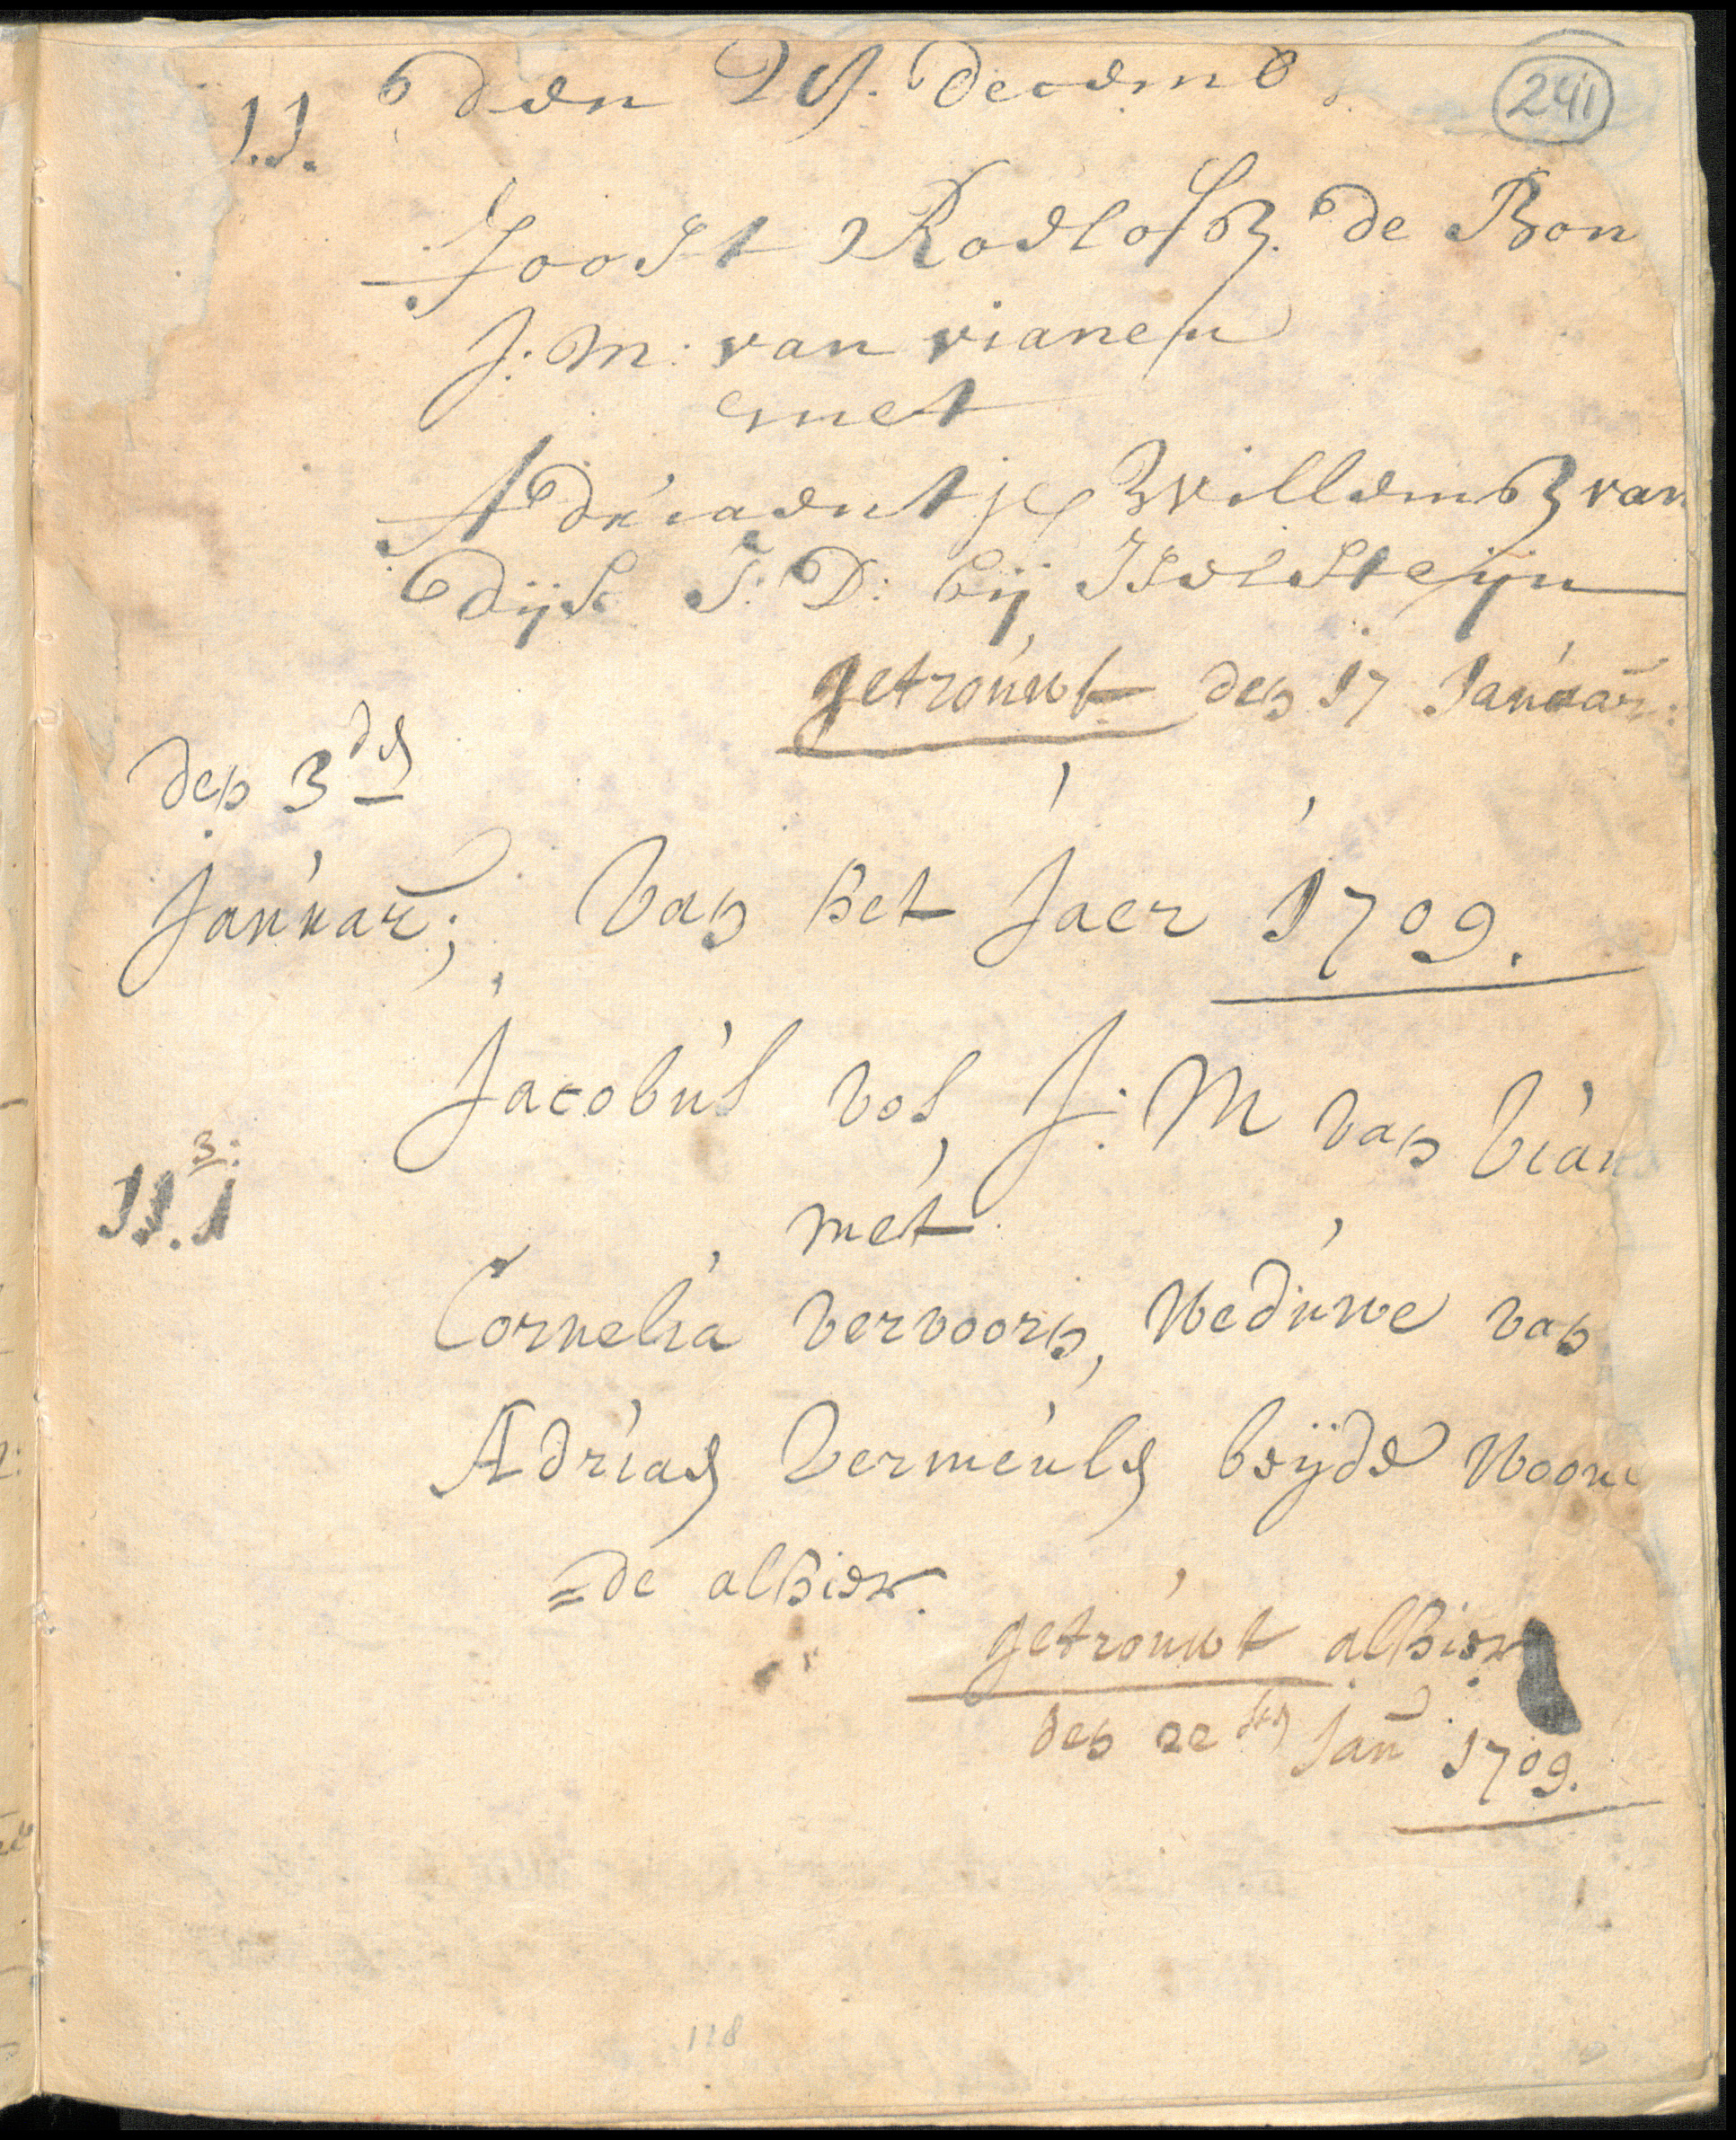 241
den 29. decemb
11.
Joost Roelofsz. de Bon
J: M: van vianen
met
Adriaentje Willemsz van
dijk J: D: bij Iselsteijn
getrouwt den 17 Januar:
den 3de
Januar; van het Jaer 1709.
Jacobus vos, J: M van vian
3:
met
Cornelia vervoorn, Weduwe van
Adriaen vermeulen beijde Woone
=de alhier.
getrouwt alhier
den 20sten Jan 1709.
118